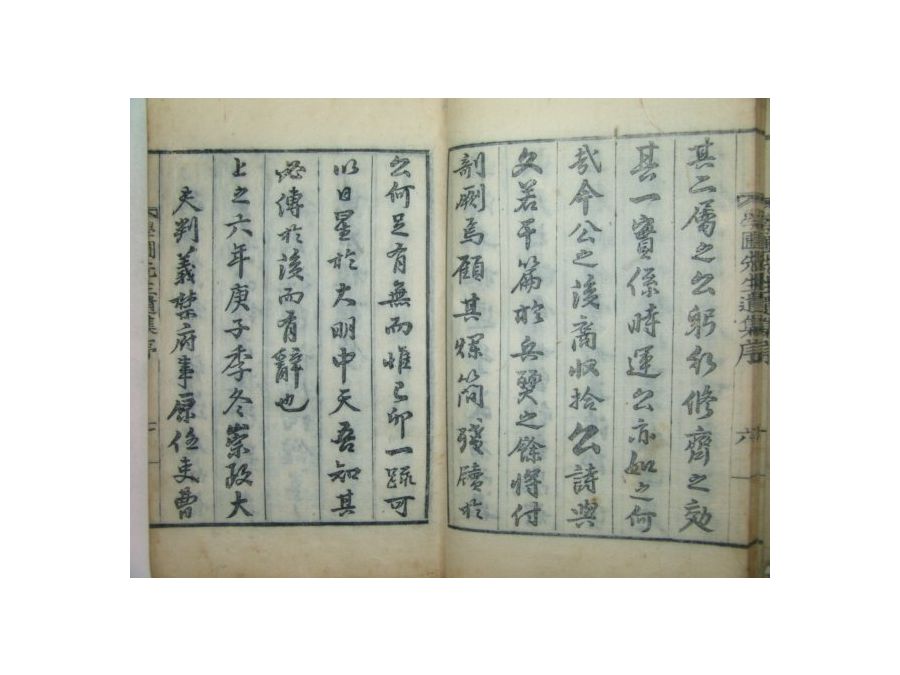 學圃先生遺集序 六
其二屬之公躬於修齊之効
其一實係時運公亦如之何
哉今公之後裔收拾公詩與
文若干篇於兵燹之餘將付
剞劂焉顧其爛簡殘牘於
公何足有無而惟己卯一疏可
以日星於大明中天吾知其
必傳於後而有辭也
上之六年庚子季冬崇政大
夫判義禁府事原任吏曹
學圃先生遺集序 七